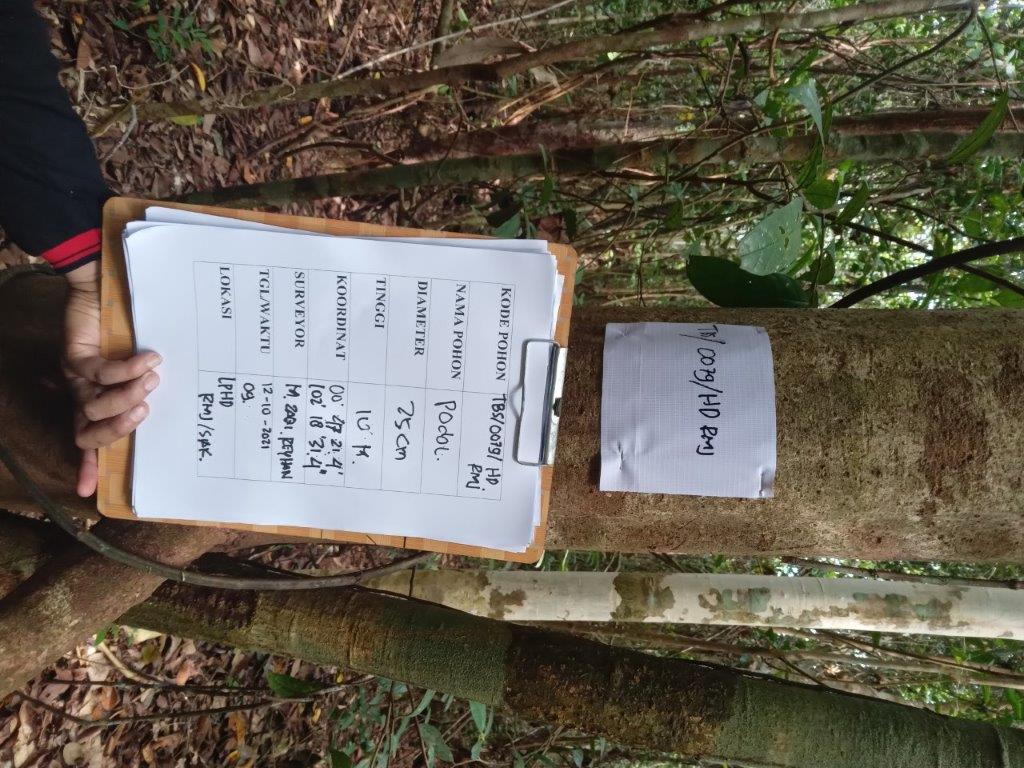 KODE POHON TBS/0079/HD RMJ
NAMA POHON
DIAMETER 25cm
TINGGI 10 M.
KOORDINAT 00' 21.4"
102' 18' 31.4"
SURVEYOR M. REYHAN
TGL/WAKTU 12-10-2021
09.
LOKASI LPHD
RMJ/SAK.
/0079/HD RMJ